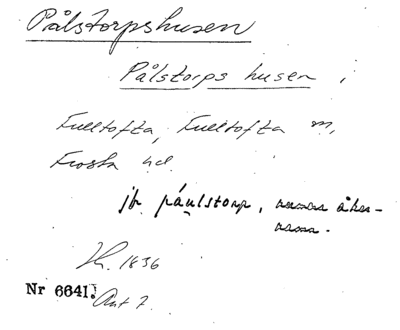 Pålstorpshusen
Pålstorps husen i
Fulltofta, Fulltofta sn,
Frosta hd.
jfr páulstorp, annas åke-
rarna.
1836
Nr 6641. Ant 7.